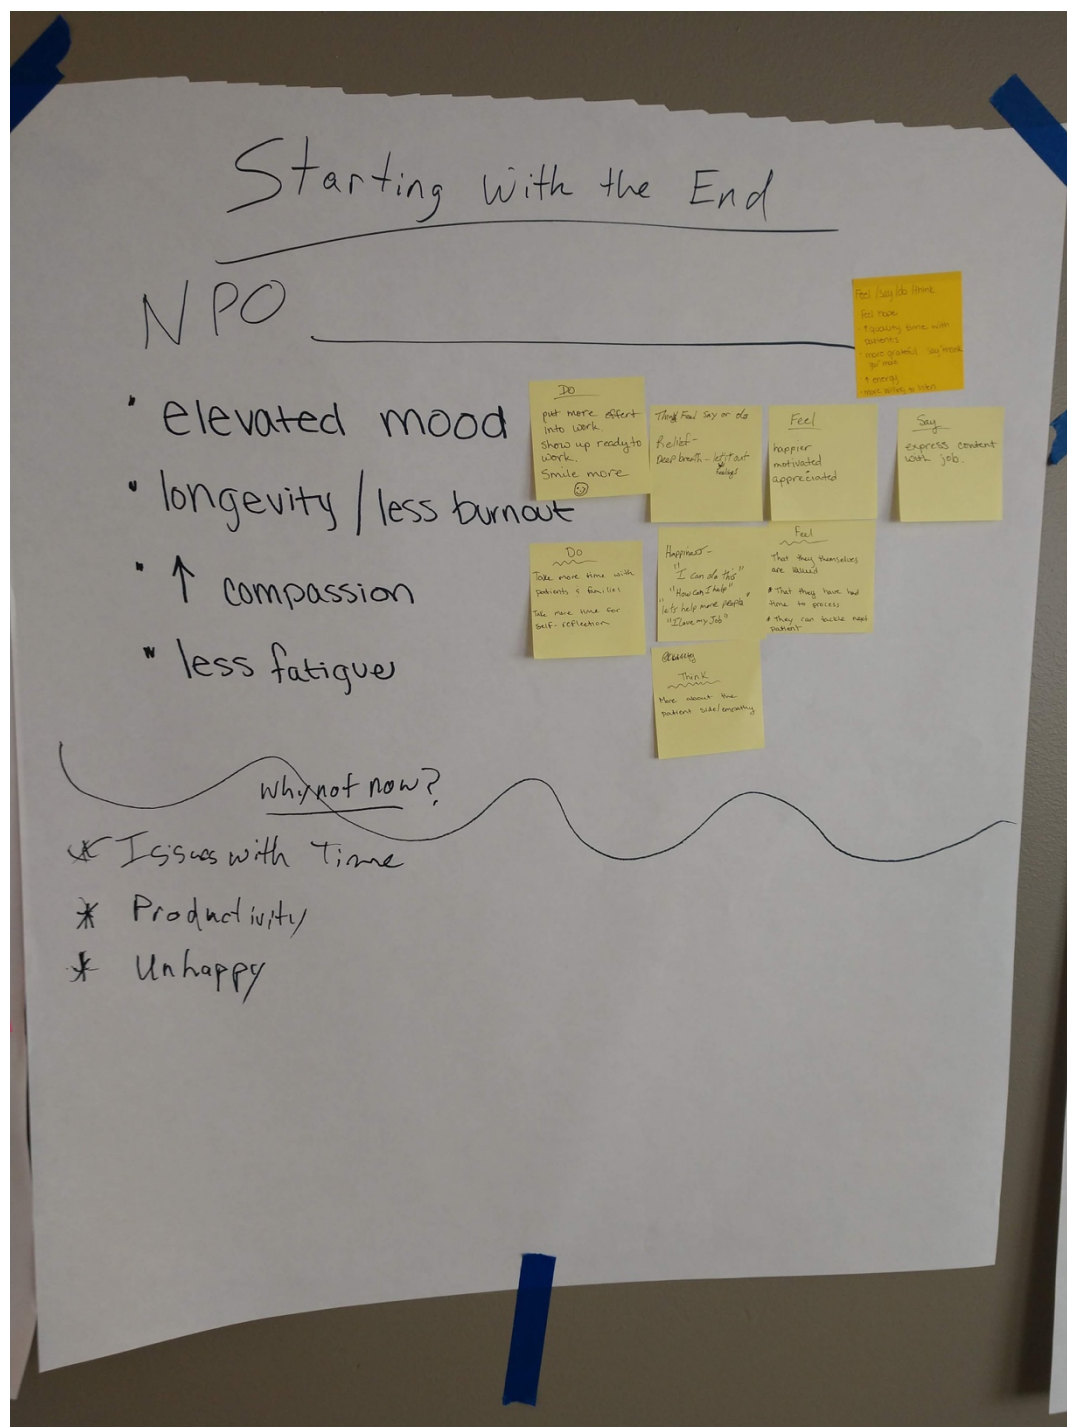 Starting with the End
NPO
Feel/say/do/think
Feel more
↑ quality time with
patients
more grateful say "thank
you" more
↑ energy
more willing to listen
• elevated mood
• longevity / less burnout
• ↑ compassion
• less fatigue
Do
put more effort
into work.
show up ready to
work.
Smile more
☺
Think Feel Say or do
Relief -
Deep breath - let it out
feelings
Feel
happier
motivated
appreciated
Say
express content
with job.
Do
Take more time with
patients & families
Take more time for
self-reflection
Happiness -
"I can do this"
"How can I help"
"let's help more people"
"I love my Job"
Feel
That they themselves
are valued
• That they have had
time to process
• They can tackle next
patient
Think
More about the
patient side/empathy
Why not now?
* Issues with Time
* Productivity
* Unhappy